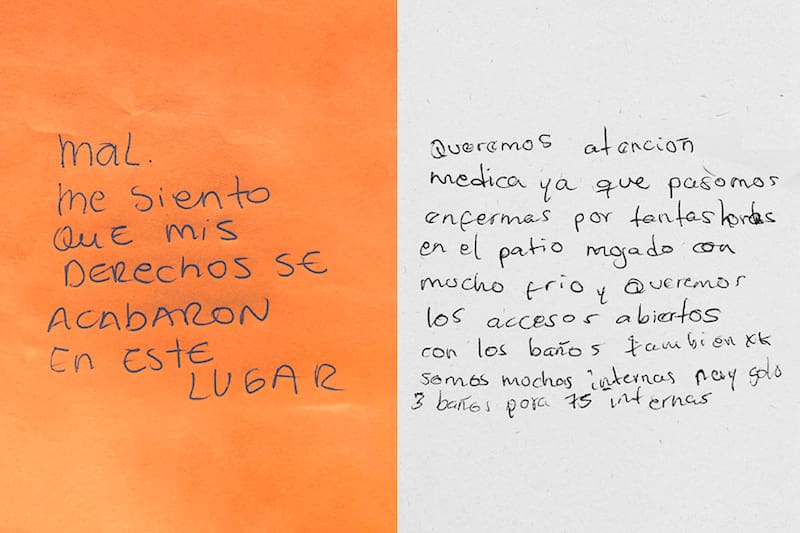 maL.
me siento
que mis
DERECHOS SE
ACABARON
En ESTE
LUGAR
Queremos atencion
medica ya que pasamos
enfermas por tantas horas
en el patio mojado con
mucho frio y queremos
los accesos abiertos
con los baños tambien xk
somos muchas internas hay solo
3 baños para 75 internas